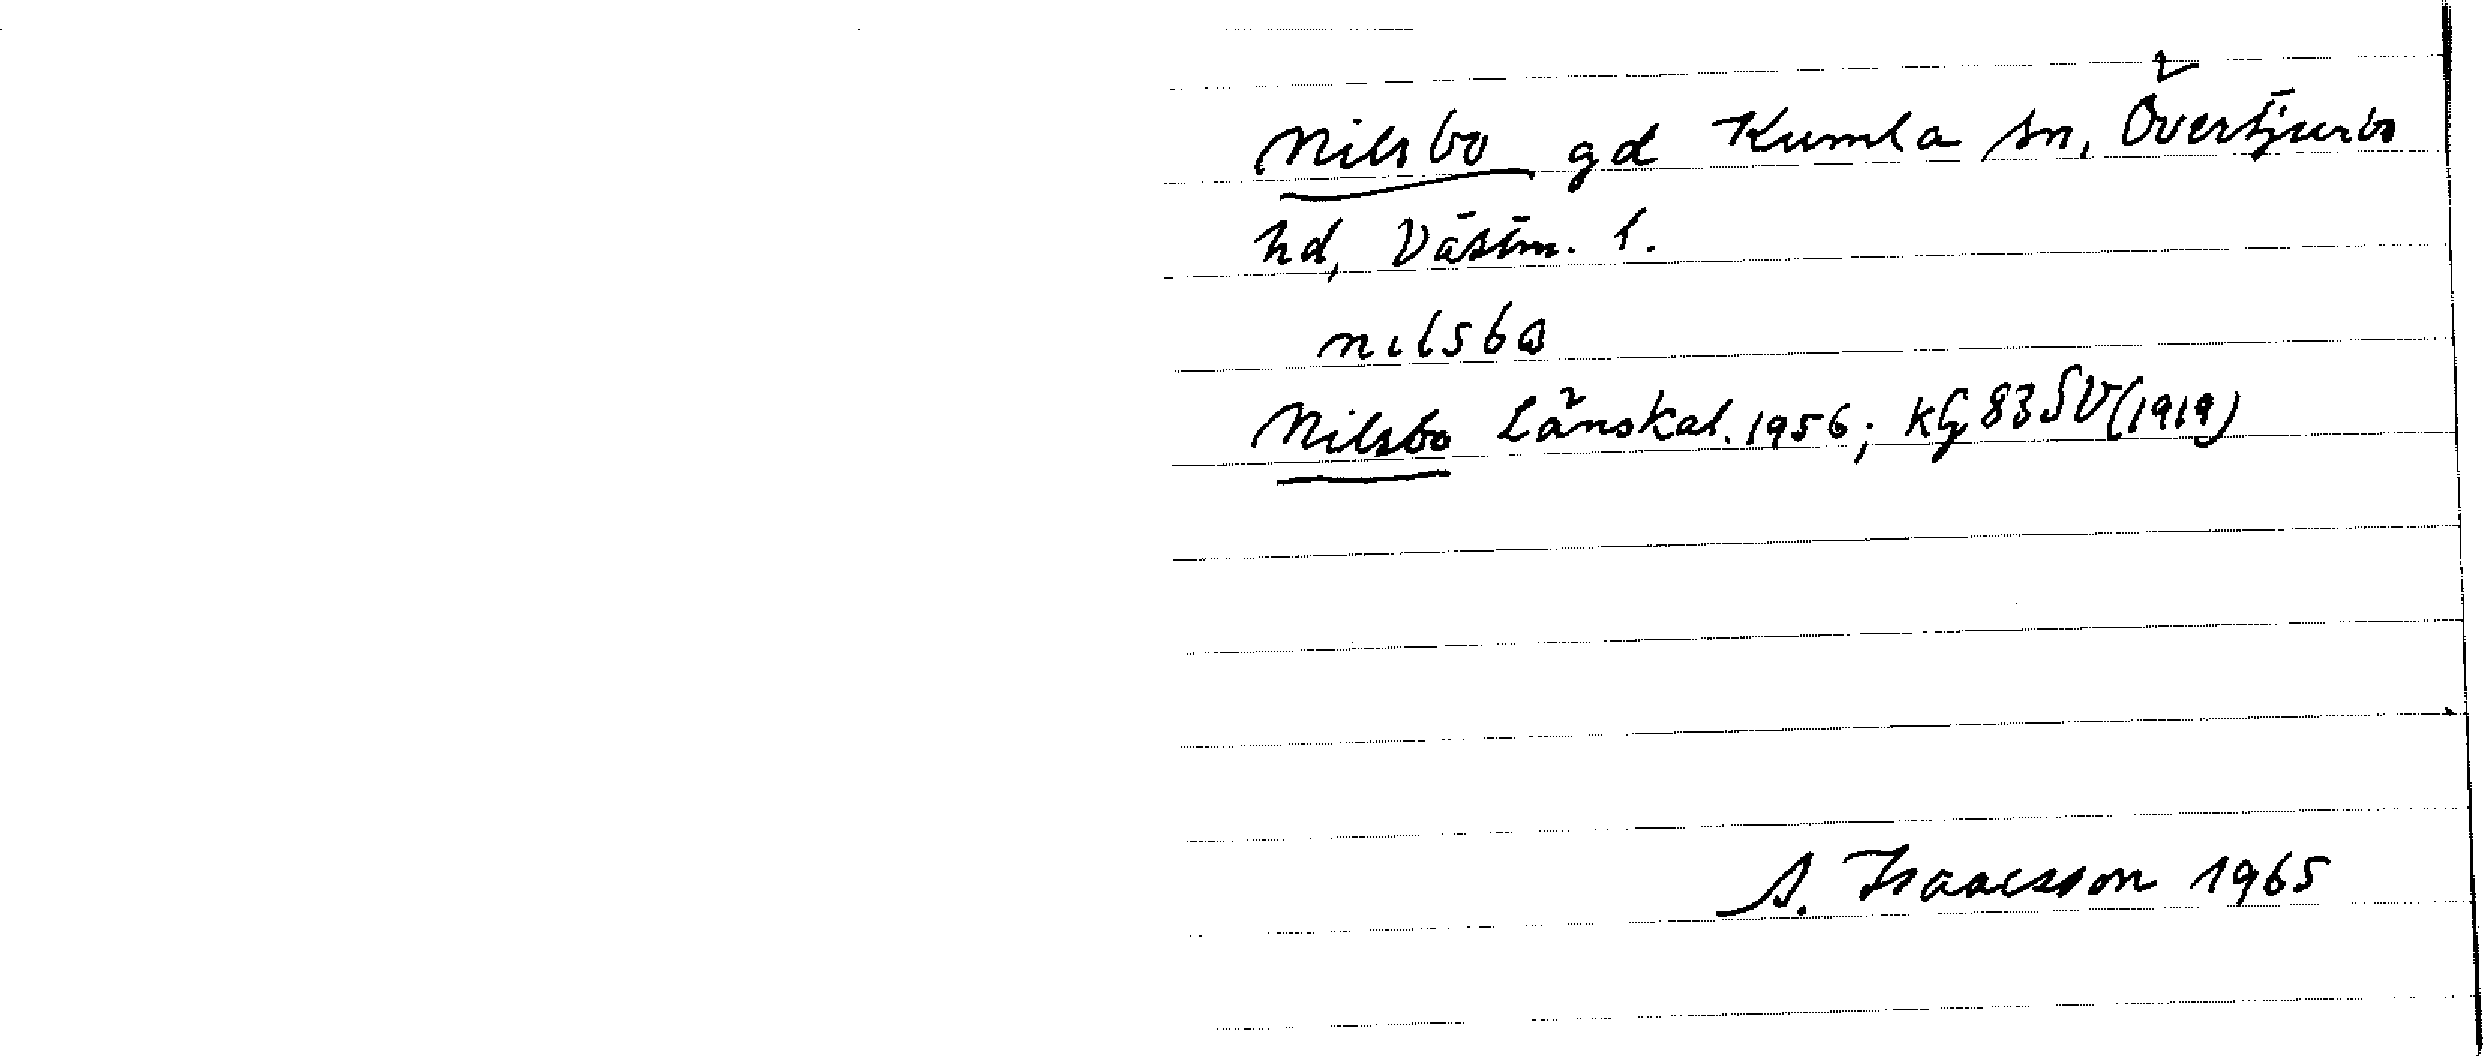 Nilsbo gd Kumla sn, Övertjurbo
hd, Västm. l.
nılsbɷ
Nilsbo Länskal. 1956; kG 83 SV (1919)
A. Isaacsson 1965